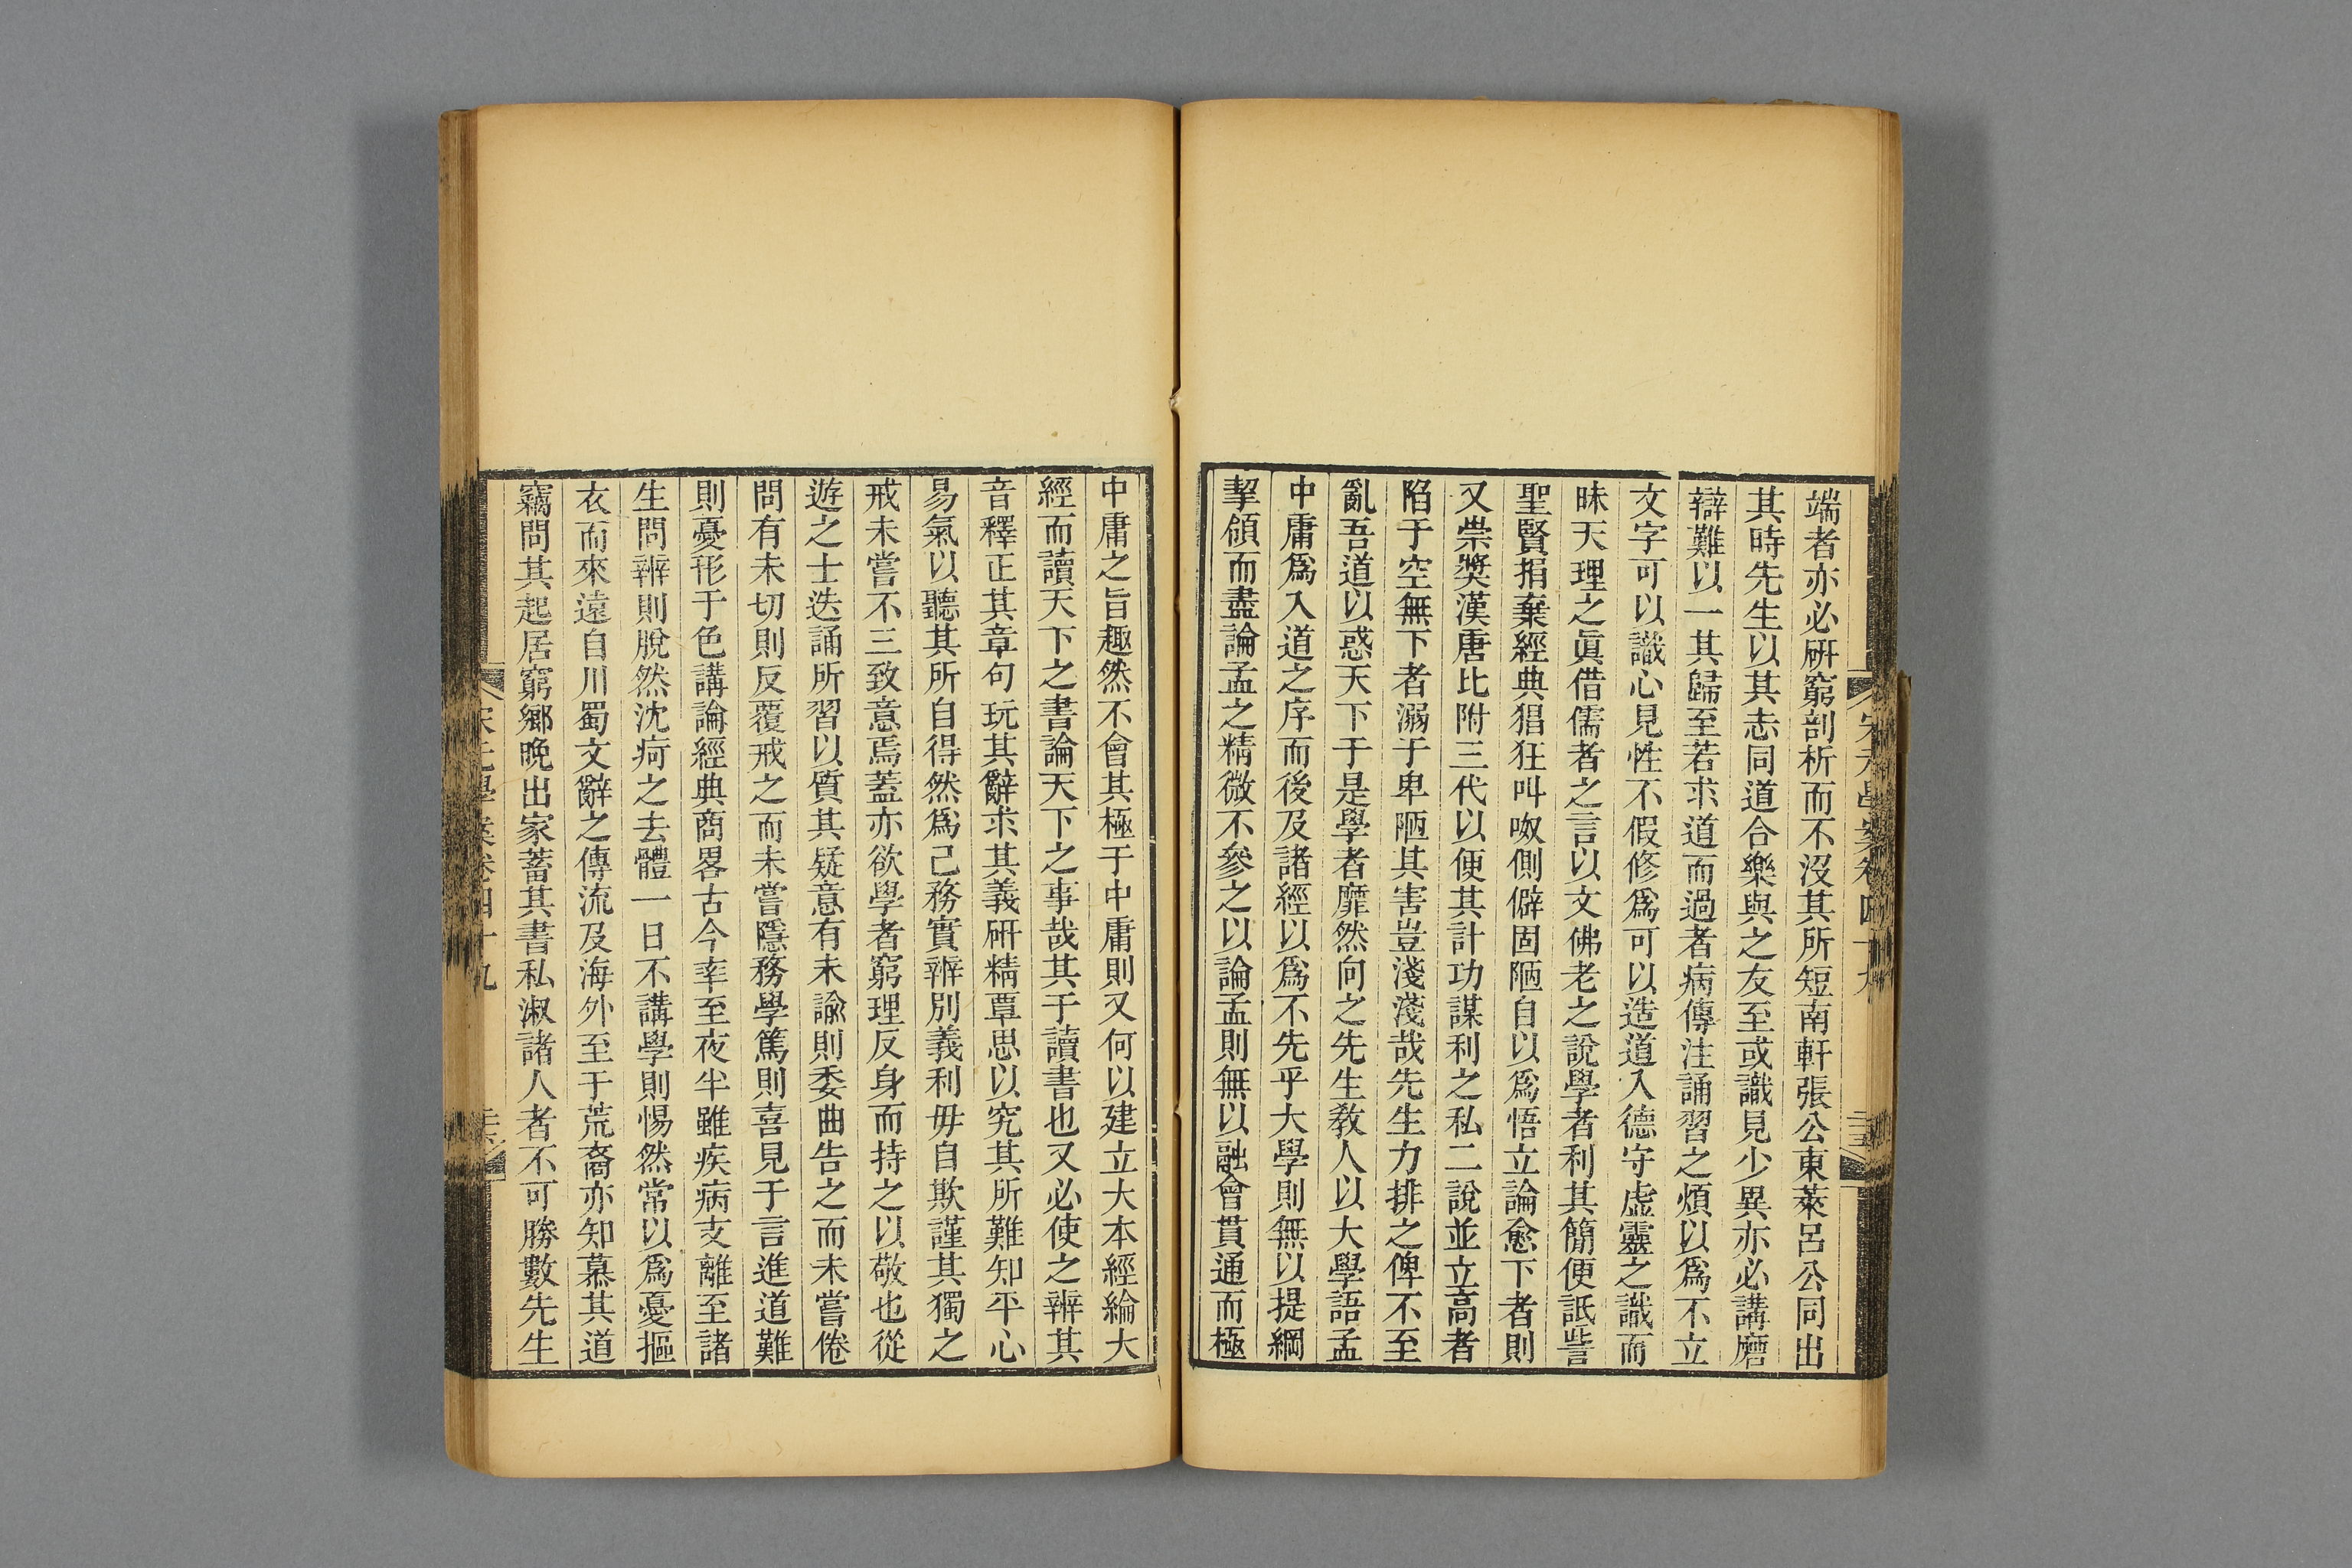 端者亦必硏窮剖析而不沒其所短南軒張公東萊呂公同出
其時先生以其志同道合樂與之友至或識見少異亦必講磨
辯難以一其歸至若求道而過者病傳注誦習之煩以爲不立
文字可以識心見性不假修爲可以造道入德守虛靈之識而
昧天理之眞借儒者之言以文佛老之說學者利其簡便詆訾
聖賢捐棄經典猖狂叫呶側僻固陋自以爲悟立論愈下者則
又崇獎漢唐比附三代以便其計功謀利之私二說並立高者
陷于空無下者溺于卑陋其害豈淺淺哉先生力排之俾不至
亂吾道以惑天下于是學者靡然向之先生敎人以大學語孟
中庸爲入道之序而後及諸經以爲不先乎大學則無以提綱
挈領而盡論孟之精微不參之以論孟則無以融會貫通而極
中庸之旨趣然不會其極于中庸則又何以建立大本經綸大
經而讀天下之書論天下之事哉其于讀書也又必使之辨其
音釋正其章句玩其辭求其義硏精覃思以究其所難知平心
易氣以聽其所自得然爲己務實辨別義利毋自欺謹其獨之
戒未嘗不三致意焉蓋亦欲學者窮理反身而持之以敬也從
遊之士迭誦所習以質其疑意有未諭則委曲告之而未嘗倦
問有未切則反覆戒之而未嘗隱務學篤則喜見于言進道難
則憂形于色講論經典商畧古今率至夜半雖疾病支離至諸
生問辨則脫然沈疴之去體一日不講學則惕然常以爲憂摳
衣而來遠自川蜀文辭之傳流及海外至于荒裔亦知慕其道
竊問其起居窮鄉晚出家蓄其書私淑諸人者不可勝數先生
宋元學案卷四十九